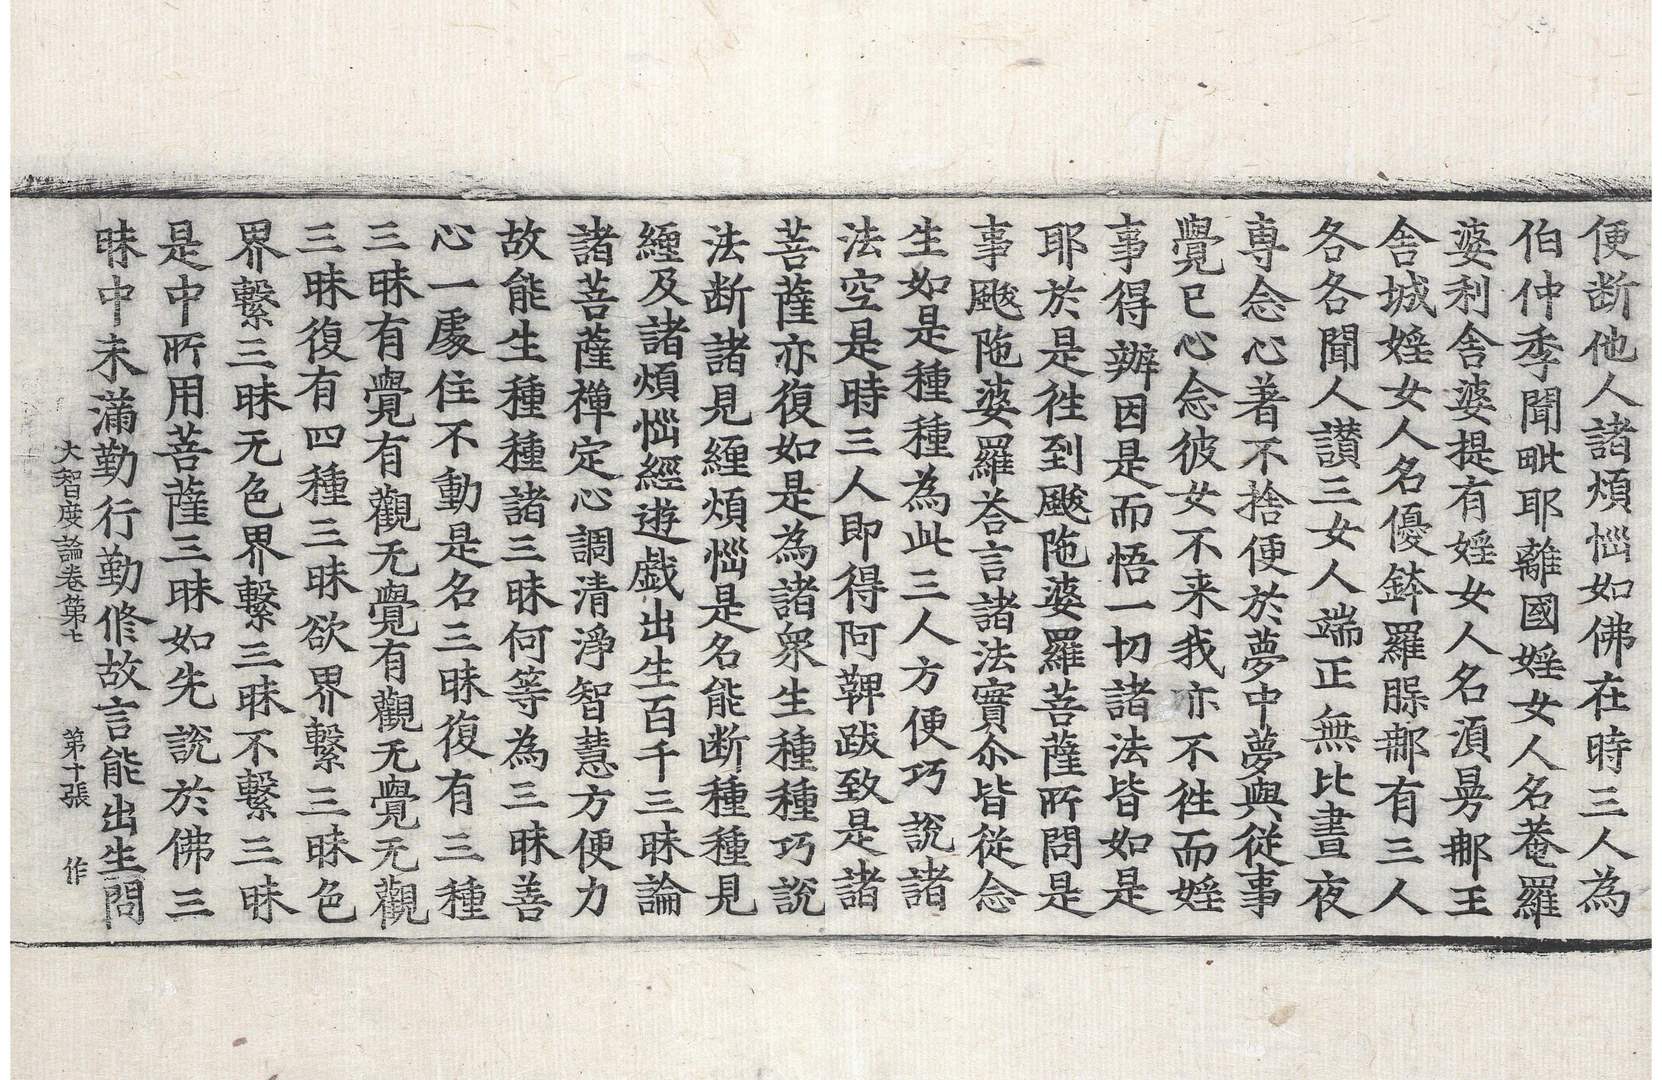 便断他人諸煩惱如佛在時三人為
伯仲季聞毗耶離國婬女人名菴羅
婆利舍婆提有婬女人名湏曼那王
舍城婬女人名優鉢羅臊那有三人
各各聞人讃三女人端正無比晝夜
專念心著不捨便於夢中夢與從事
覺已心念彼女不来我亦不徃而婬
事得辦因是而悟一切諸法皆如是
耶於是徃到颰陁婆羅菩薩所問是
事颰陁婆羅荅言諸法實尒皆從念
生如是種種為此三人方便巧說諸
法空是時三人即得阿鞞跋致是諸
菩薩亦復如是為諸衆生種種巧說
法断諸見纏煩惱是名能断種種見
纏及諸煩惱經遊戲出生百千三昧論
諸菩薩禅定心調清淨智慧方便力
故能生種種諸三昧何等為三昧善
心一處住不動是名三昧復有三種
三昧有覺有觀无覺有觀无覺无觀
三昧復有四種三昧欲界繫三昧色
界繫三昧无色界繫三昧不繫三昧
是中所用菩薩三昧如先說於佛三
昧中未滿勤行勤修故言能出生問
大智度論卷第七　第十張　作